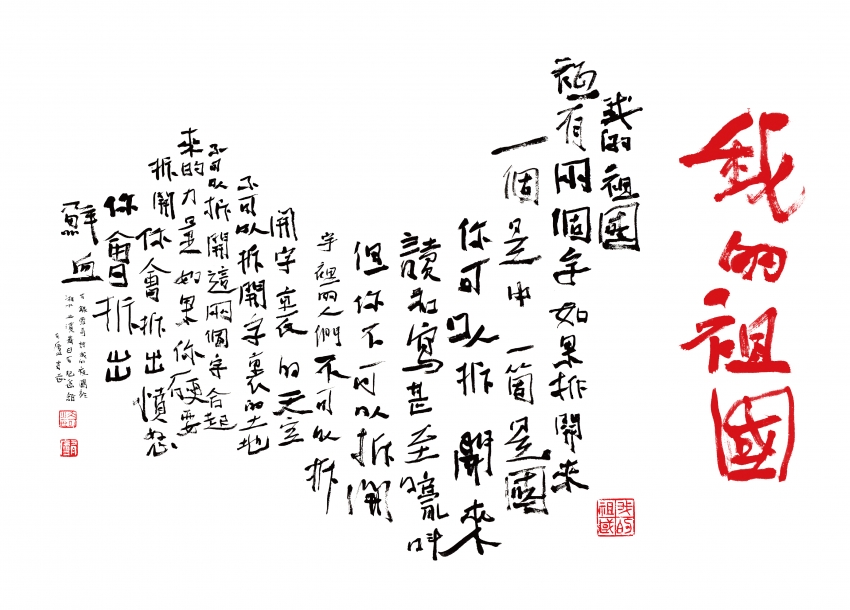 我的祖國
我的祖國
有兩個字如果拆開來
一個是中 一箇是國
你可以拆開來
讀和寫甚至叫
但你不可以拆開
字裏的人們不可以拆
開字裏的天空
不可以拆開字裏的土地
不可以拆開這兩個字合起
來的力量如果你硬要
拆開你會拆出憤怒
你會拆出
鮮血